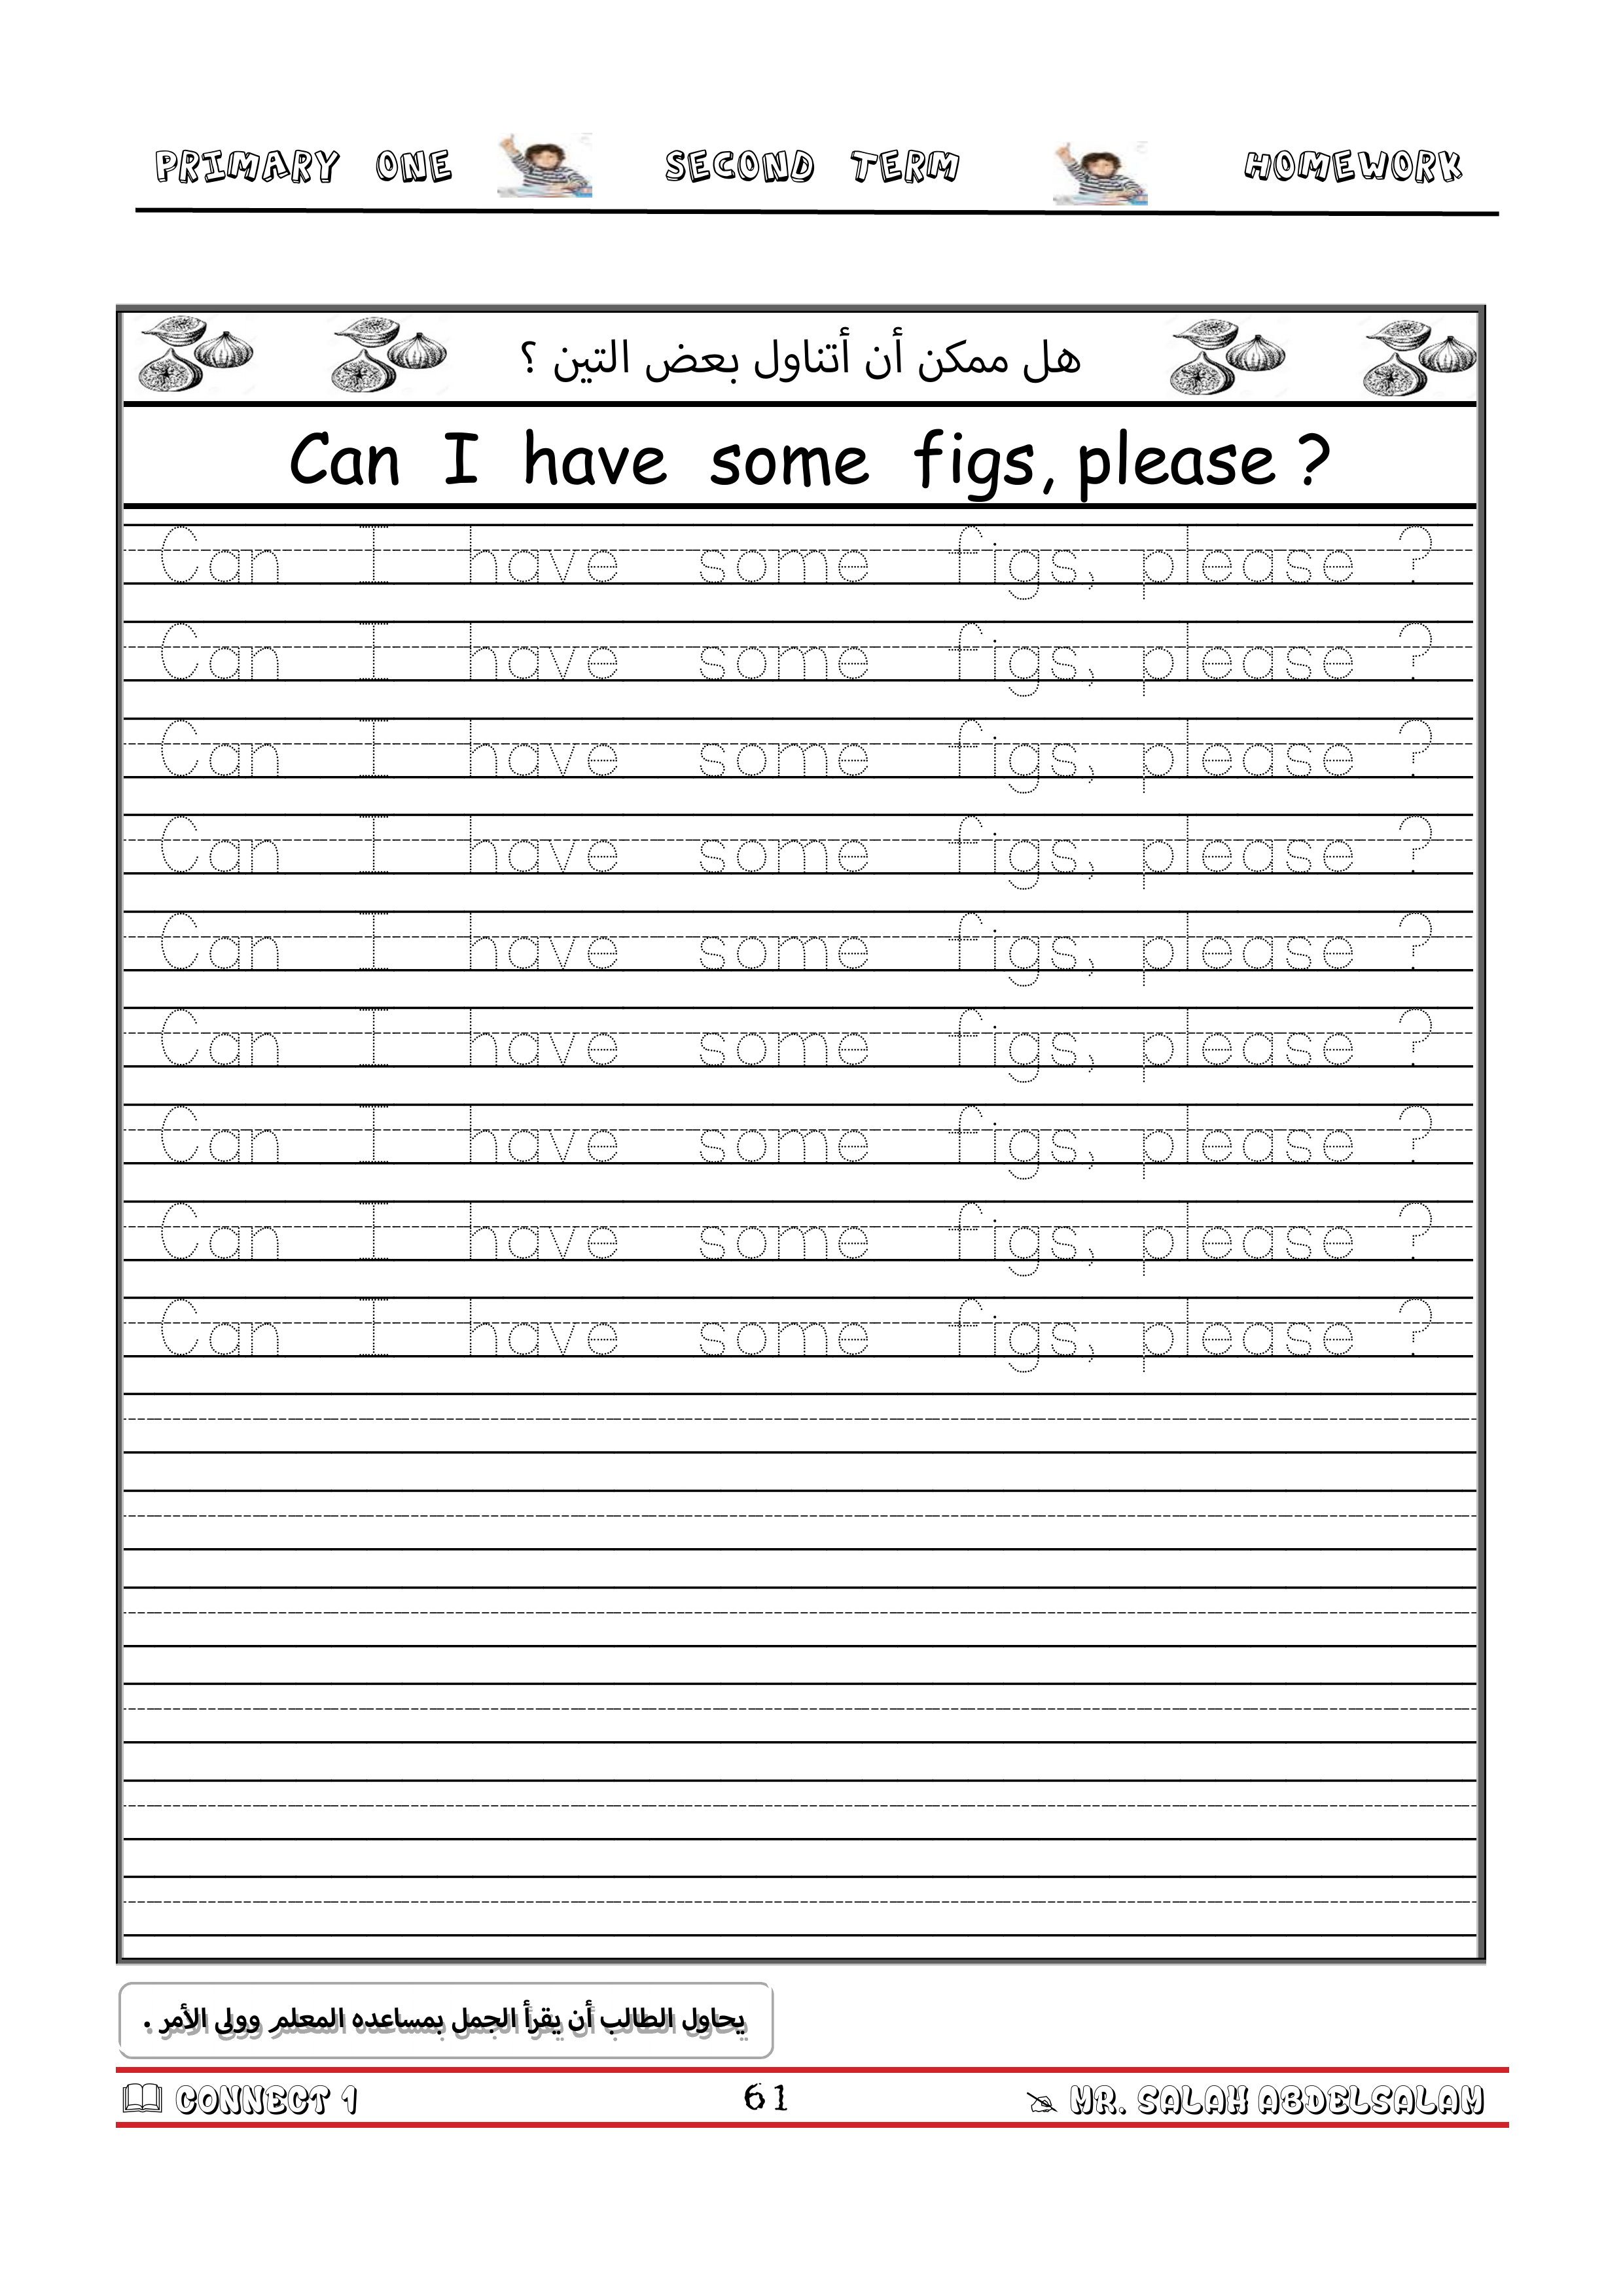 PRIMARY ONE SECOND TERM HOMEWORK
هل ممكن أن أتناول بعض التين ؟
Can I have some figs, please ?
Can I have some figs, please ?
Can I have some figs, please ?
Can I have some figs, please ?
Can I have some figs, please ?
Can I have some figs, please ?
Can I have some figs, please ?
Can I have some figs, please ?
Can I have some figs, please ?
Can I have some figs, please ?
يحاول الطالب أن يقرأ الجمل بمساعده المعلم وولى الأمر .
CONNECT 1 61 MR. SALAH ABDELSALAM